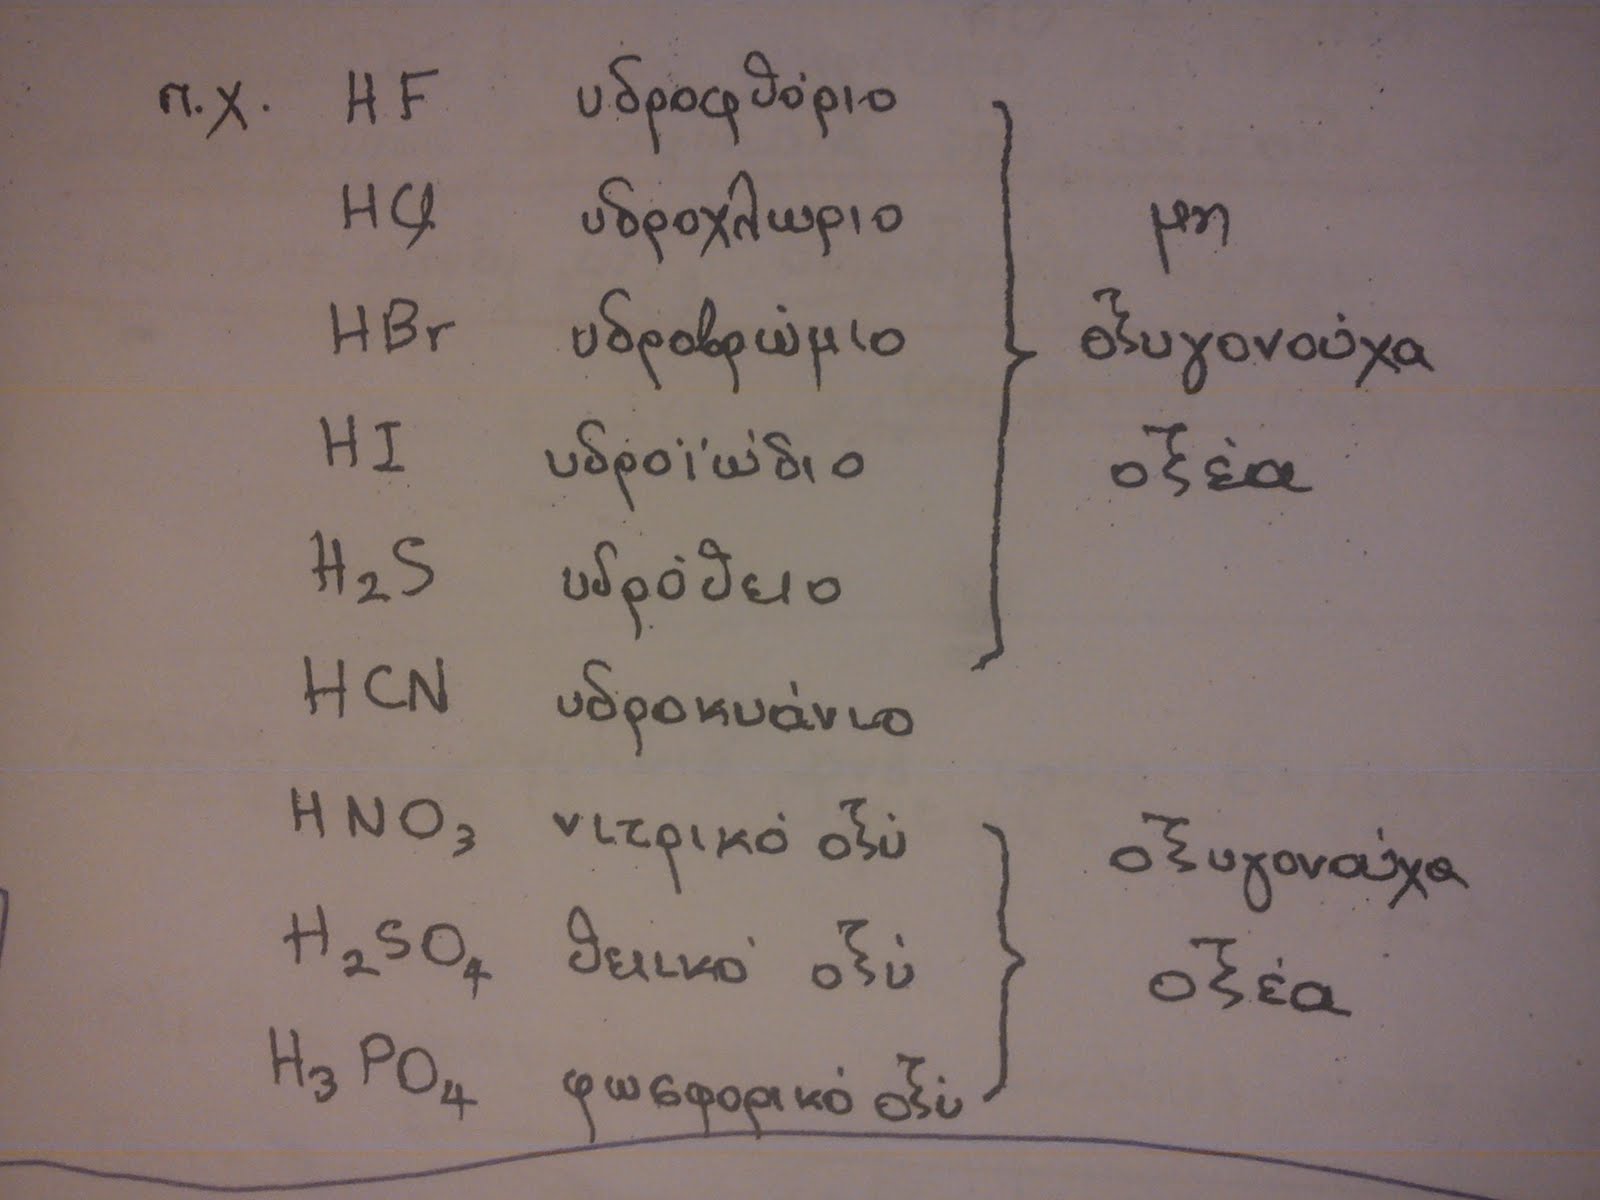 π.χ. HF υδροφθόριο
HCl υδροχλωριο μη
HBr υδροβρώμιο οξυγονούχα
HI υδροϊώδιο οξέα
H₂S υδρόθειο
HCN υδροκυάνιο
HNO₃ νιτρικό οξύ οξυγονούχα
H₂SO₄ θειικό οξύ οξέα
H₃PO₄ φωσφορικό οξύ